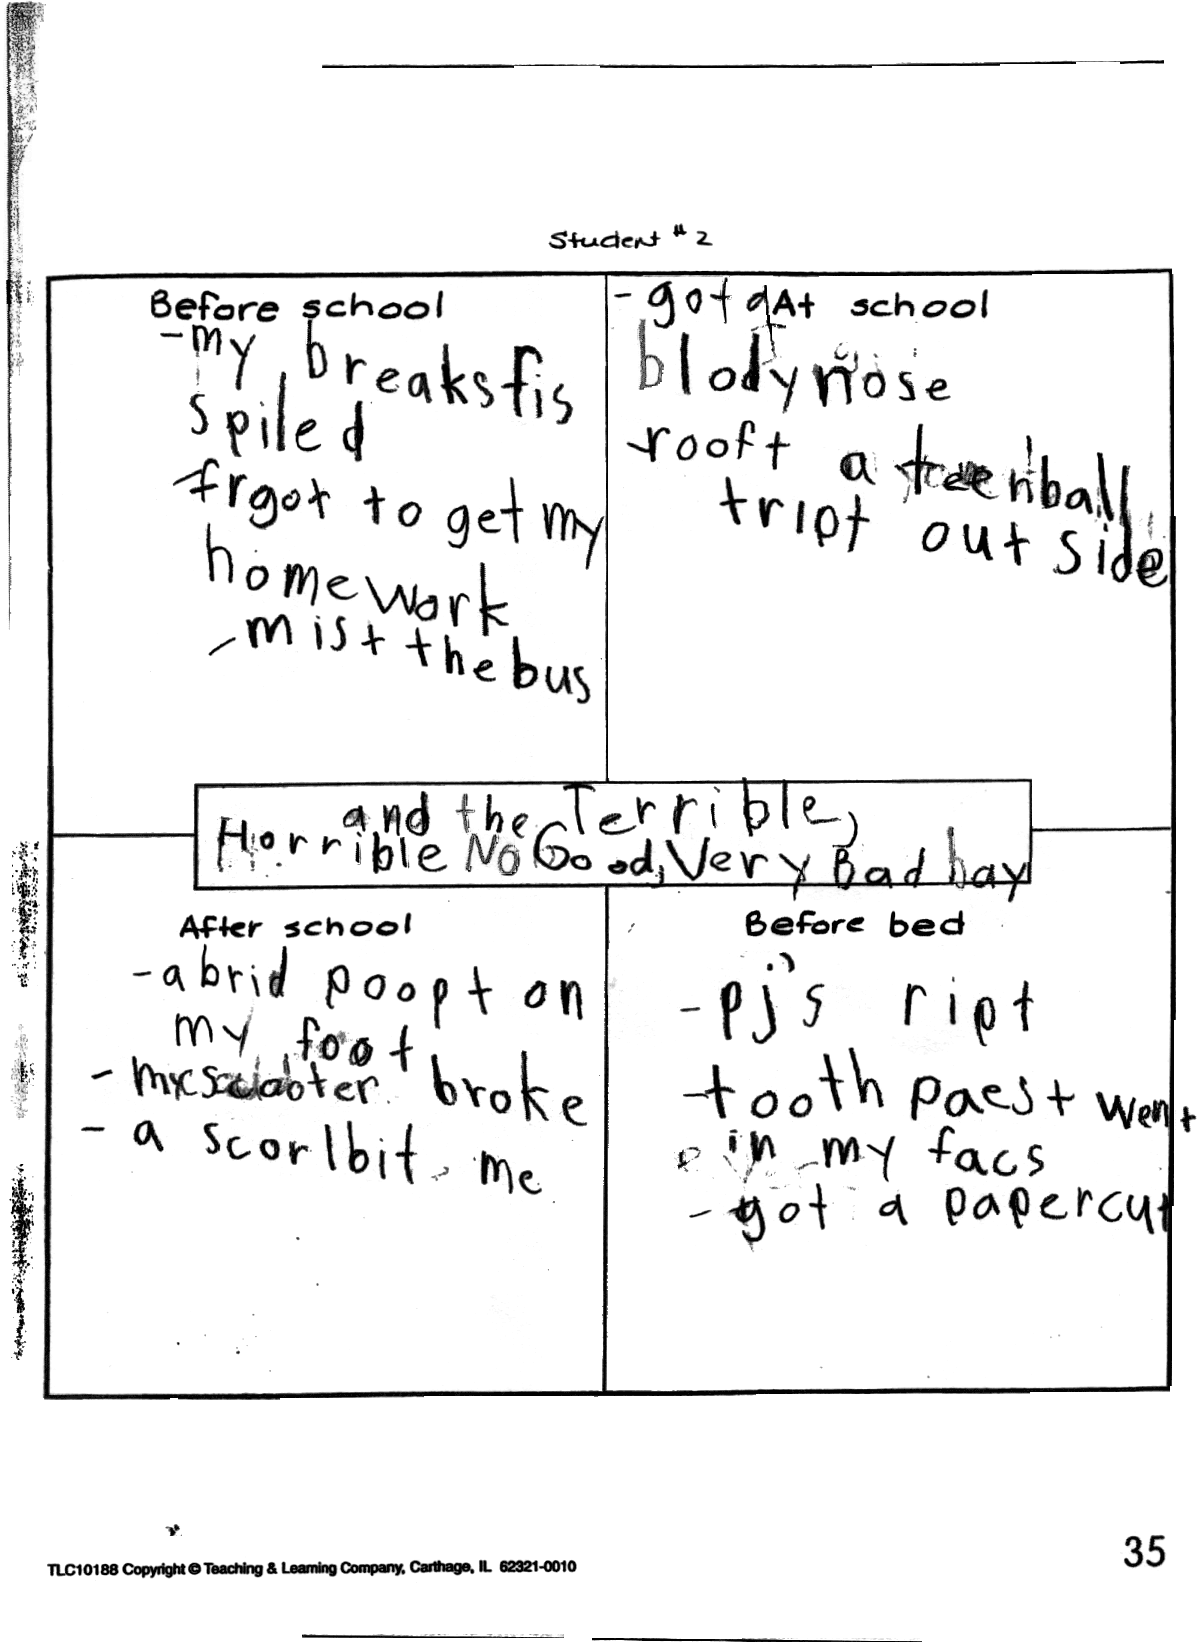 Student #2
Before school
-my breaksfis
spiled
-frgot to get my
homework
-mist the bus
At school
-got a
blody nose
-rooft a teenball
tript out side
and the Terrible,
Horrible No Good, Very Bad Day
After school
-a brid poopt on
my foot
- my scooter broke
- a scorl bit me
Before bed
-pj's ript
-tooth paest went
in my facs
-got a papercut
TLC10188 Copyright © Teaching & Learning Company, Carthage, IL 62321-0010
35